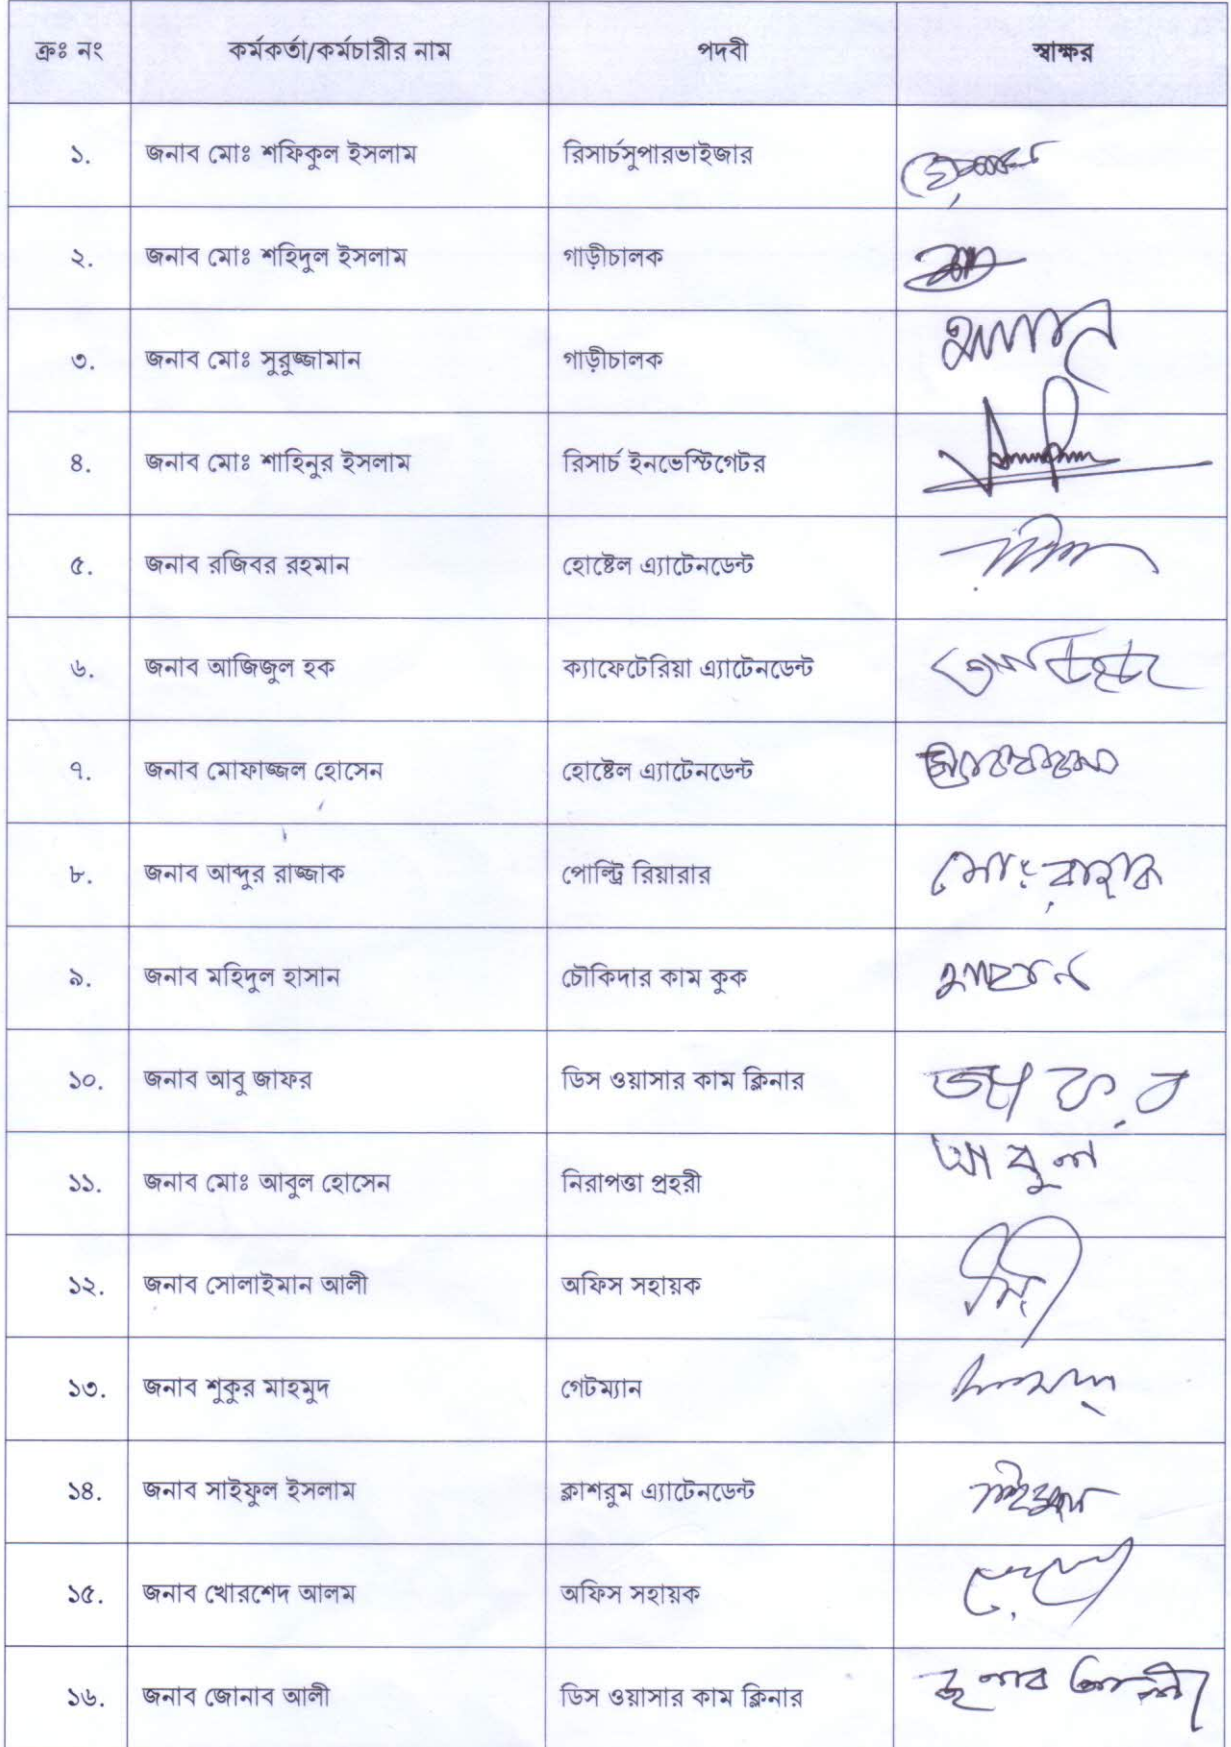 ক্রঃ নং কর্মকর্তা/কর্মচারীর নাম পদবী স্বাক্ষর
১. জনাব মোঃ শফিকুল ইসলাম রিসার্চসুপারভাইজার
২. জনাব মোঃ শহিদুল ইসলাম গাড়ীচালক
৩. জনাব মোঃ সুরুজ্জামান গাড়ীচালক
৪. জনাব মোঃ শাহিনুর ইসলাম রিসার্চ ইনভেস্টিগেটর
৫. জনাব রজিবর রহমান হোষ্টেল এ্যাটেনডেন্ট
৬. জনাব আজিজুল হক ক্যাফেটেরিয়া এ্যাটেনডেন্ট
৭. জনাব মোফাজ্জল হোসেন হোষ্টেল এ্যাটেনডেন্ট
৮. জনাব আব্দুর রাজ্জাক পোল্ট্রি রিয়ারার
৯. জনাব মহিদুল হাসান চৌকিদার কাম কুক
১০. জনাব আবু জাফর ডিস ওয়াসার কাম ক্লিনার জাফর
১১. জনাব মোঃ আবুল হোসেন নিরাপত্তা প্রহরী আবুল
১২. জনাব সোলাইমান আলী অফিস সহায়ক
১৩. জনাব শুকুর মাহমুদ গেটম্যান
১৪. জনাব সাইফুল ইসলাম ক্লাশরুম এ্যাটেনডেন্ট
১৫. জনাব খোরশেদ আলম অফিস সহায়ক
১৬. জনাব জোনাব আলী ডিস ওয়াসার কাম ক্লিনার